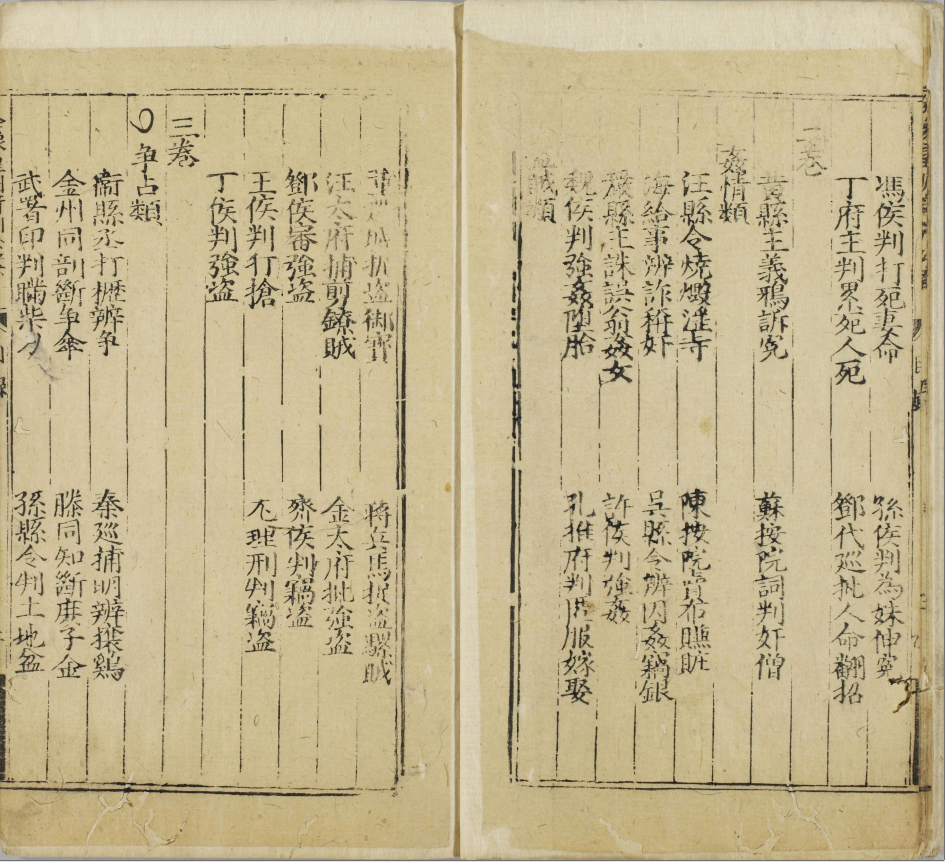 馮侯判打死妻命　孫侯判為妹伸冤
丁府主判累死人死　鄧代巡批人命翻招
二卷
黃縣主義鴉訴冤　蘇按院詞判奸僧
姦情類
汪縣令燒燬淫寺　陳按院賣布賺贓
海給事辨詐稱奸　吳縣令辨因姦竊銀
嚴縣主誅誤翁姦女　許侯判強姦
魏侯判強姦堕胎　孔推府判匿服嫁娶
賊類
董巡城捉盗御寶　蔣兵馬捉盗騾賊
汪太府捕剪鐐賊　金太府批強盗
鄧侯審強盗　齊侯判竊盗
王侯判打搶　尤理刑判竊盗
丁侯判強盗
三卷
争占類
衛縣丞打櫪辨争　秦巡捕明辨攘鷄
金州同剖斷争傘　滕同知斷庶子金
武署印判瞞柴刀　孫縣令判土地盆